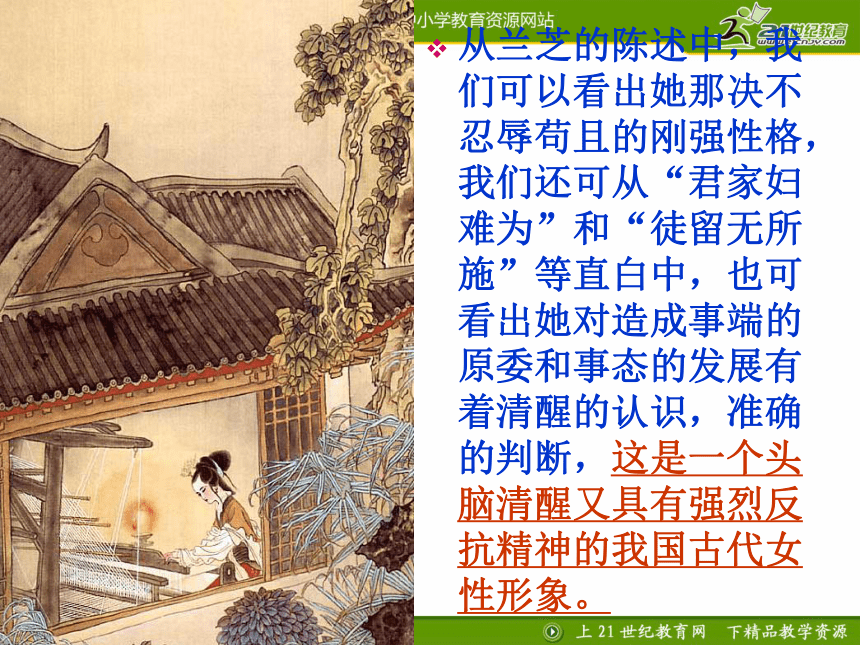 中小学教育资源网站
21世纪教育
www.21cnjy.com
从兰芝的陈述中，我
们可以看出她那决不
忍辱苟且的刚强性格，
我们还可从“君家妇
难为”和“徒留无所
施”等直白中，也可
看出她对造成事端的
原委和事态的发展有
着清醒的认识，准确
的判断，这是一个头
脑清醒又具有强烈反
抗精神的我国古代女
性形象。
上 21 世纪教育网 下精品教学资源